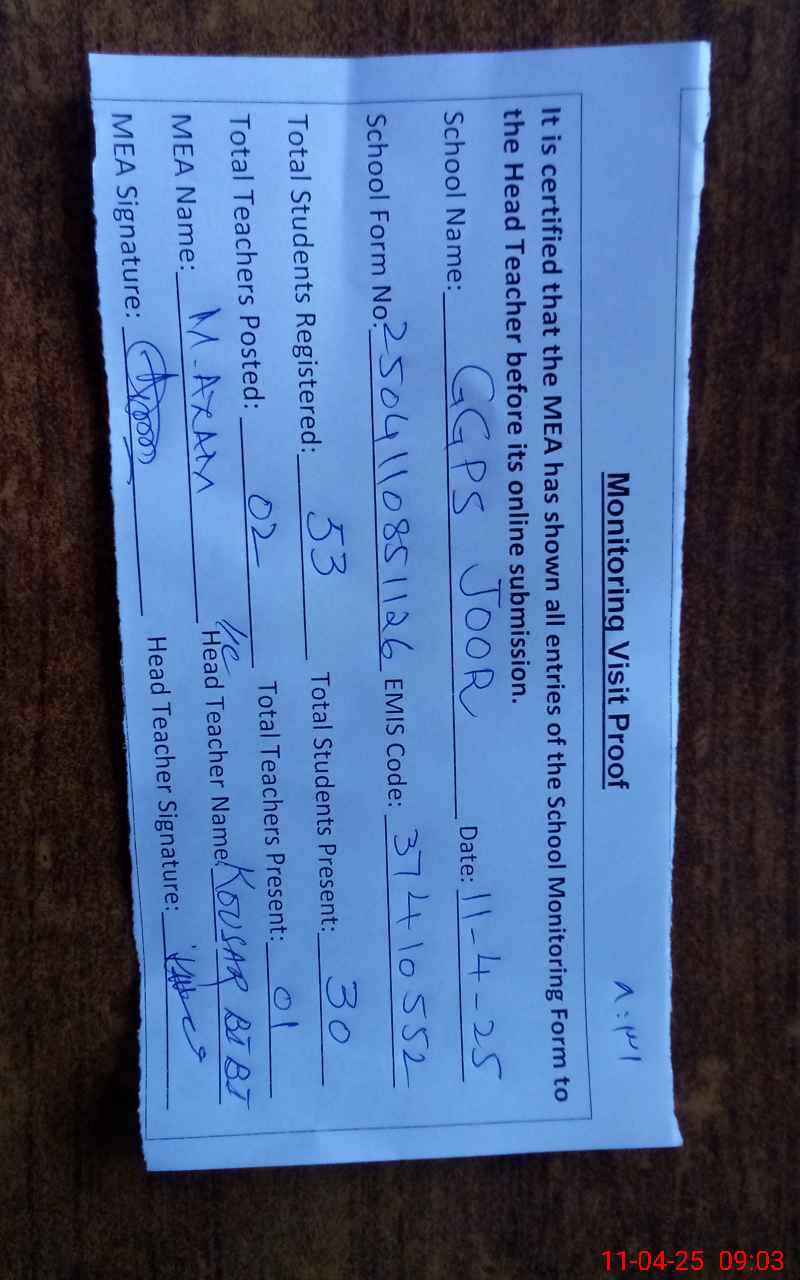 Monitoring Visit Proof ۸:۳۱
It is certified that the MEA has shown all entries of the School Monitoring Form to
the Head Teacher before its online submission.
School Name: GGPS JOOR Date: 11-4-25
School Form No: 2504110851126 EMIS Code: 37410552
Total Students Registered: 53 Total Students Present: 30
Total Teachers Posted: 02 Total Teachers Present: 01
MEA Name: M. AXAM Head Teacher Name: KOUSAR BIBI
MEA Signature: Head Teacher Signature:
11-04-25 09:03